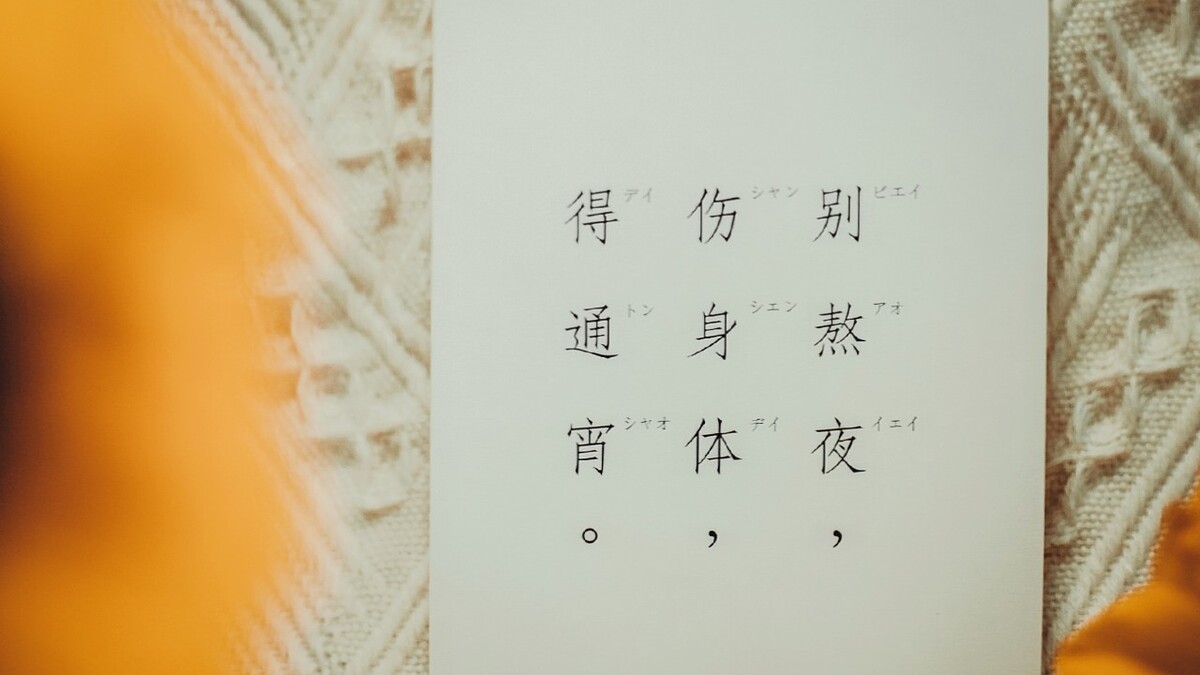 别ビエイ熬アオ夜イエイ,
伤シャン身シエン体ヂイ,
得デイ通トン宵シャオ。